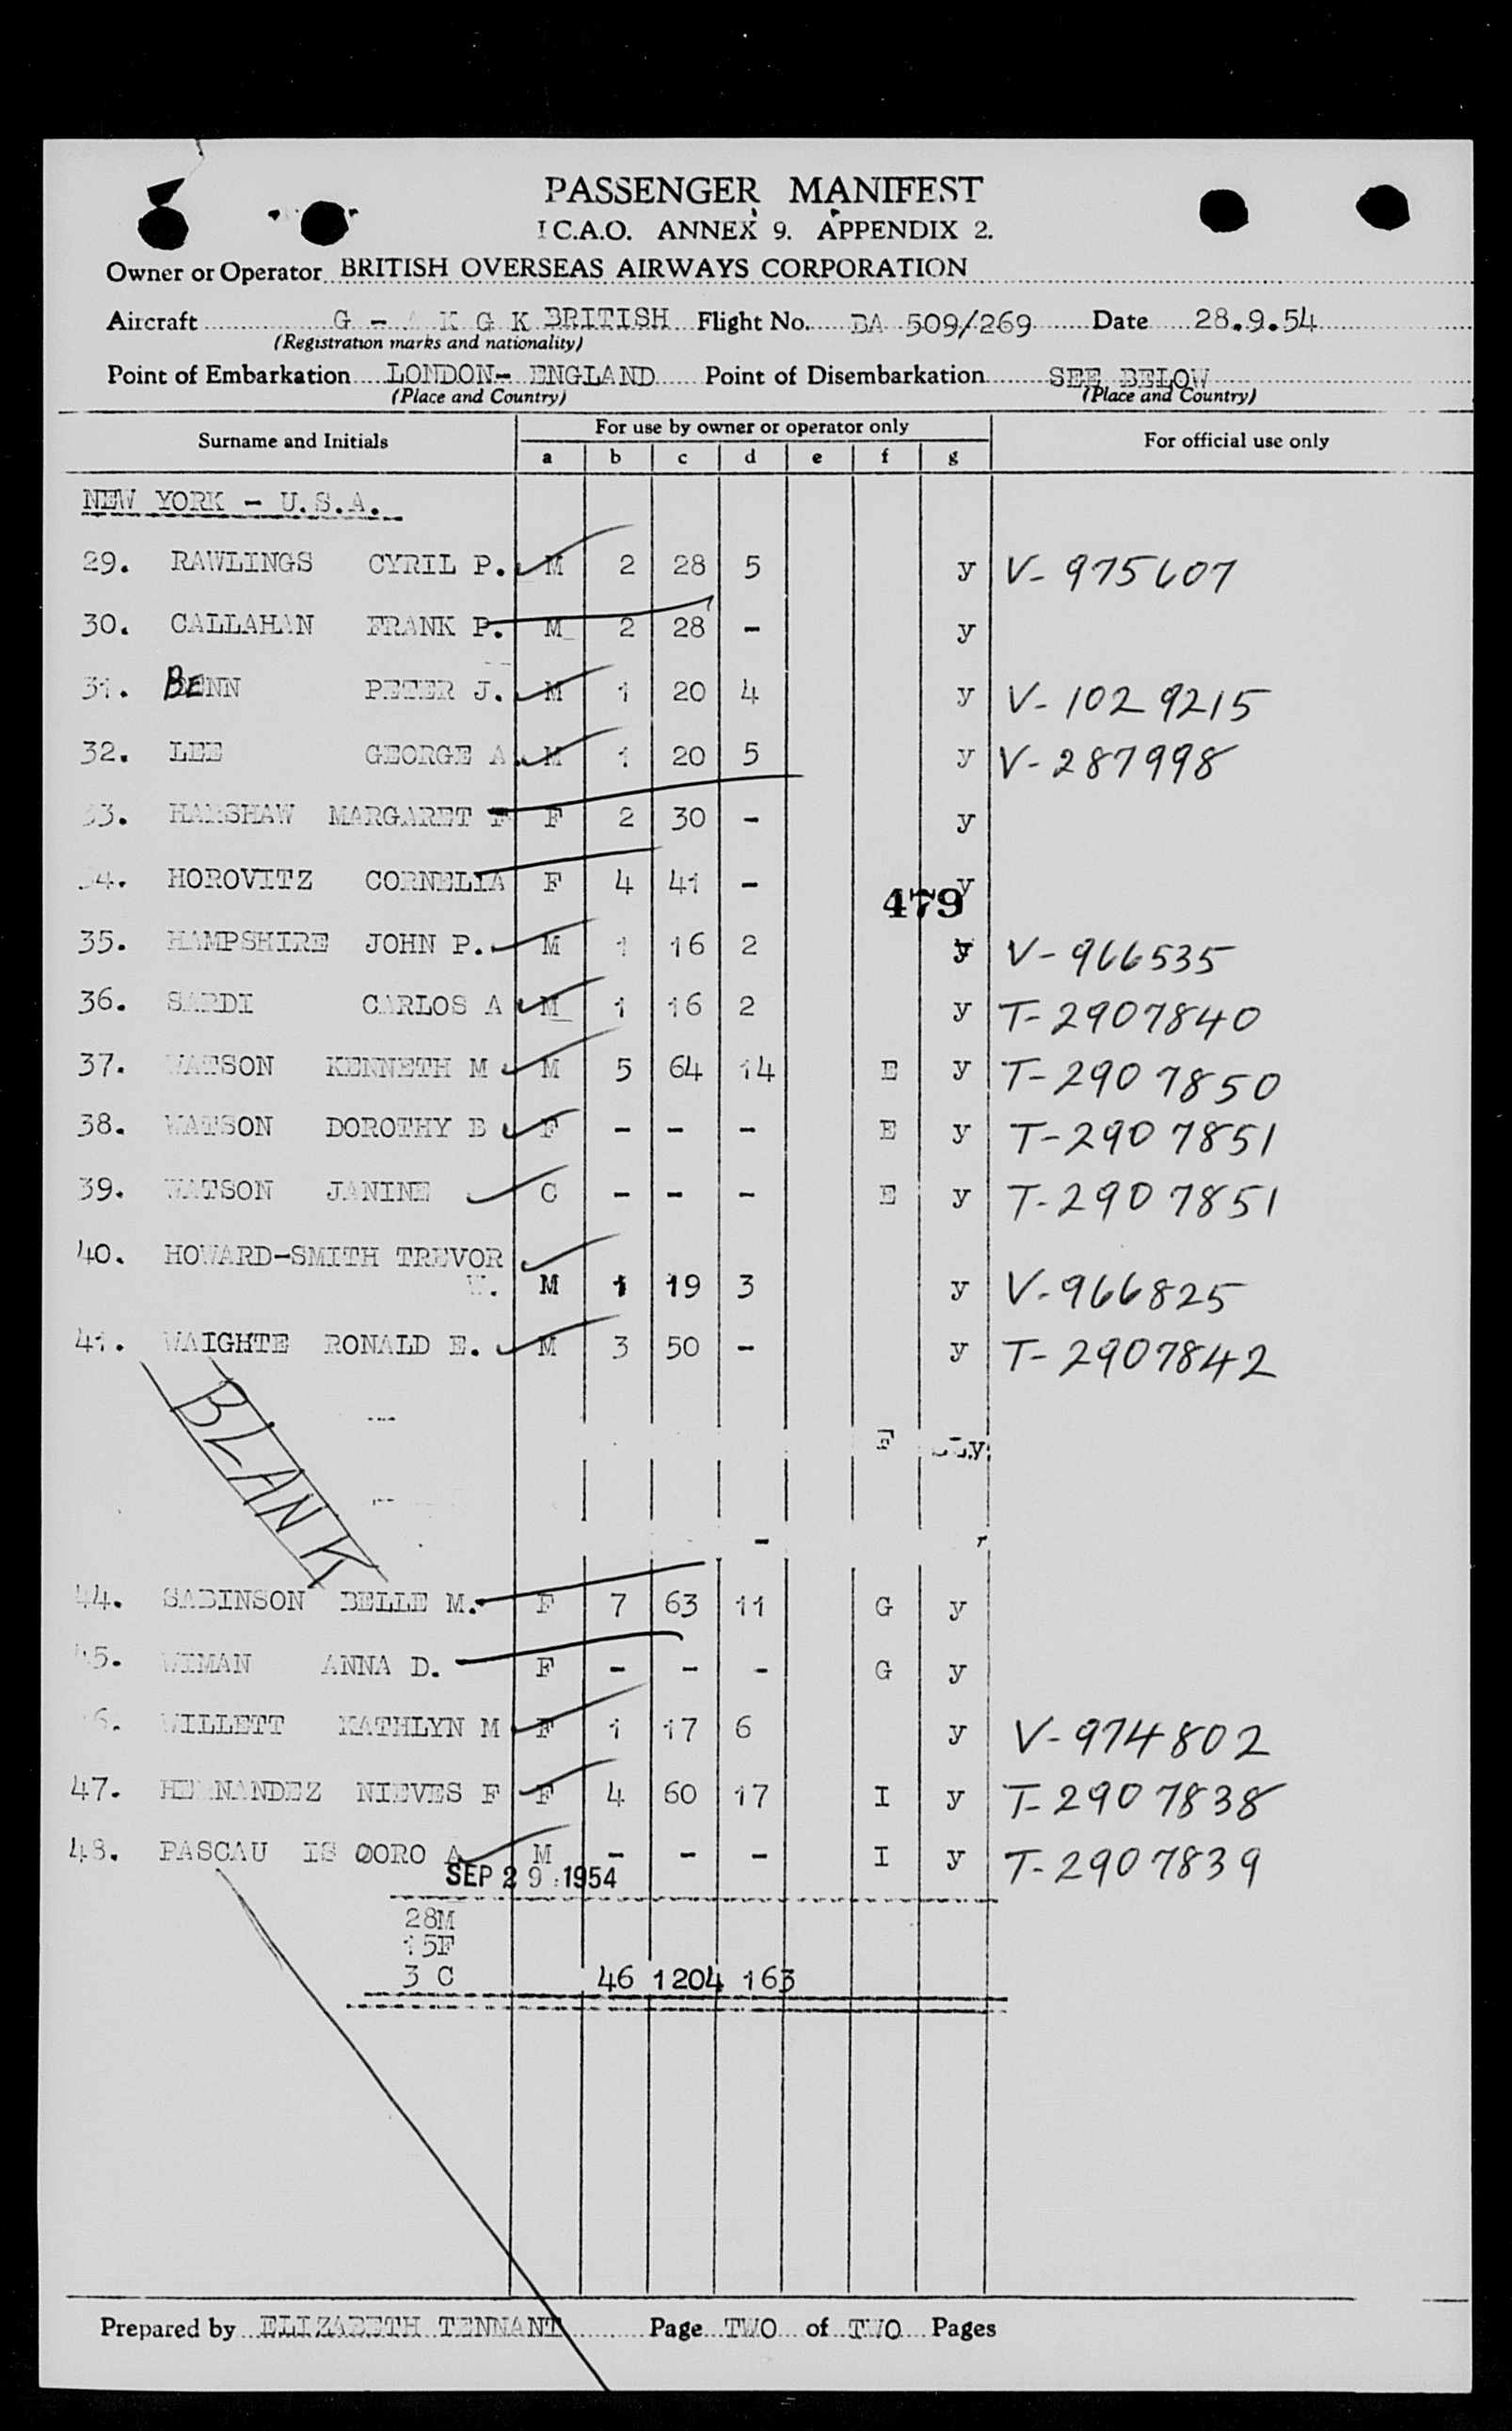 PASSENGER MANIFEST
I C.A.O. ANNEX 9. APPENDIX 2.
Owner or Operator BRITISH OVERSEAS AIRWAYS CORPORATION
Aircraft G - A K G K BRITISH Flight No. BA 509/269 Date 28.9.54
(Registration marks and nationality)
Point of Embarkation LONDON- ENGLAND Point of Disembarkation SEE BELOW
(Place and Country) (Place and Country)
Surname and Initials For use by owner or operator only For official use only
a b c d e f g
NEW YORK - U.S.A.
29. RAWLINGS CYRIL P. M 2 28 5 y V-975607
30. CALLAHAN FRANK P. M 2 28 - y
31. BENN PETER J. M 1 20 4 y V-1029215
32. LEE GEORGE A. M 1 20 5 y V-287998
33. HAMSHAW MARGARET F F 2 30 - y
34. HOROVITZ CORNELIA F 4 41 - y
479
35. HAMPSHIRE JOHN P. M 1 16 2 y V-966535
36. SARDI CARLOS A M 1 16 2 y T-2907840
37. WATSON KENNETH M M 5 64 14 E y T-2907850
38. WATSON DOROTHY B F - - - E y T-2907851
39. WATSON JANINE C - - - E y T-2907851
40. HOWARD-SMITH TREVOR
W. M 1 19 3 y V-966825
41. WAIGHTE RONALD E. M 3 50 - y T-2907842
BLANK
F y
-
44. SABINSON BELLE M. F 7 63 11 G y
45. WIMAN ANNA D. F - - - G y
46. WILLETT KATHLYN M F 1 17 6 y V-974802
47. HERNANDEZ NIEVES F F 4 60 17 I y T-2907838
48. PASCAU IS DORO A M - - - I y T-2907839
SEP 29 1954
28M
15F
3 C 46 1204 163
Prepared by ELIZABETH TENNANT Page TWO of TWO Pages